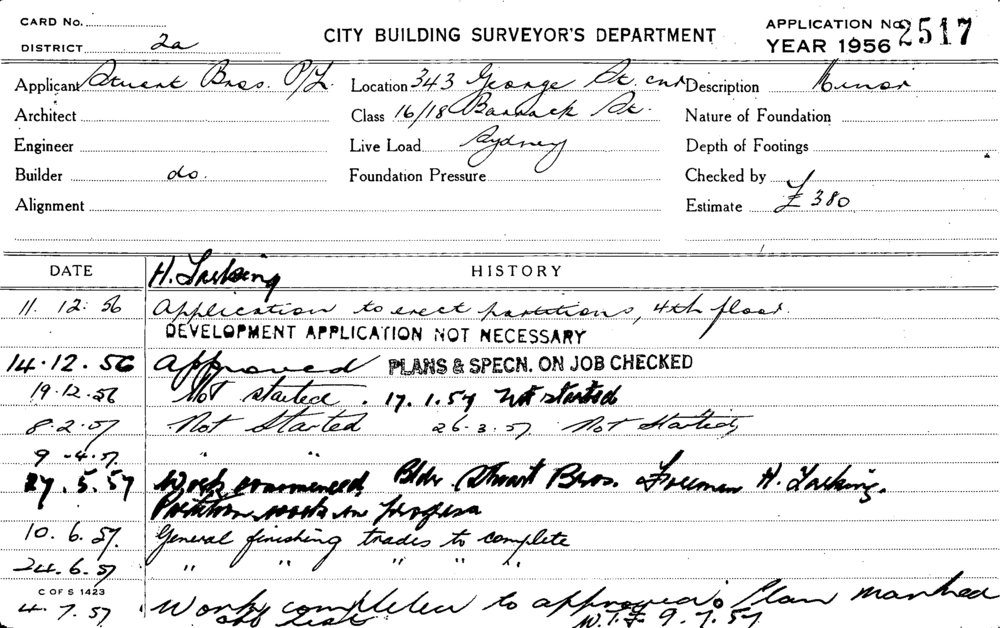 CARD No.
DISTRICT 2a
CITY BUILDING SURVEYOR'S DEPARTMENT
APPLICATION No. 2517
YEAR 1956
Applicant Stuart Bros. P/L. Location 343 George St. cnr Description Minor
Architect Class 16/18 Barrack St. Nature of Foundation
Engineer Live Load Sydney Depth of Footings
Builder do. Foundation Pressure Checked by
Alignment Estimate £ 380
DATE H. Larking HISTORY
11. 12. 56 Application to erect partitions, 4th floor.
DEVELOPMENT APPLICATION NOT NECESSARY
14.12.56 Approved PLANS & SPECN. ON JOB CHECKED
19.12.56 Not started. 17.1.57 Not started
8.2.57 Not Started 26.3.57 Not Started
9-4.57 " "
27.5.57 Work commenced, Bldr. Stuart Bros. Foreman H. Larking.
Partition work in progress
10.6.57. General finishing trades to complete
24.6.57 " " " " "
C OF S 1423
4.7.57 Work completed to approved Plan marked
off list W.I.F. 9.7.57